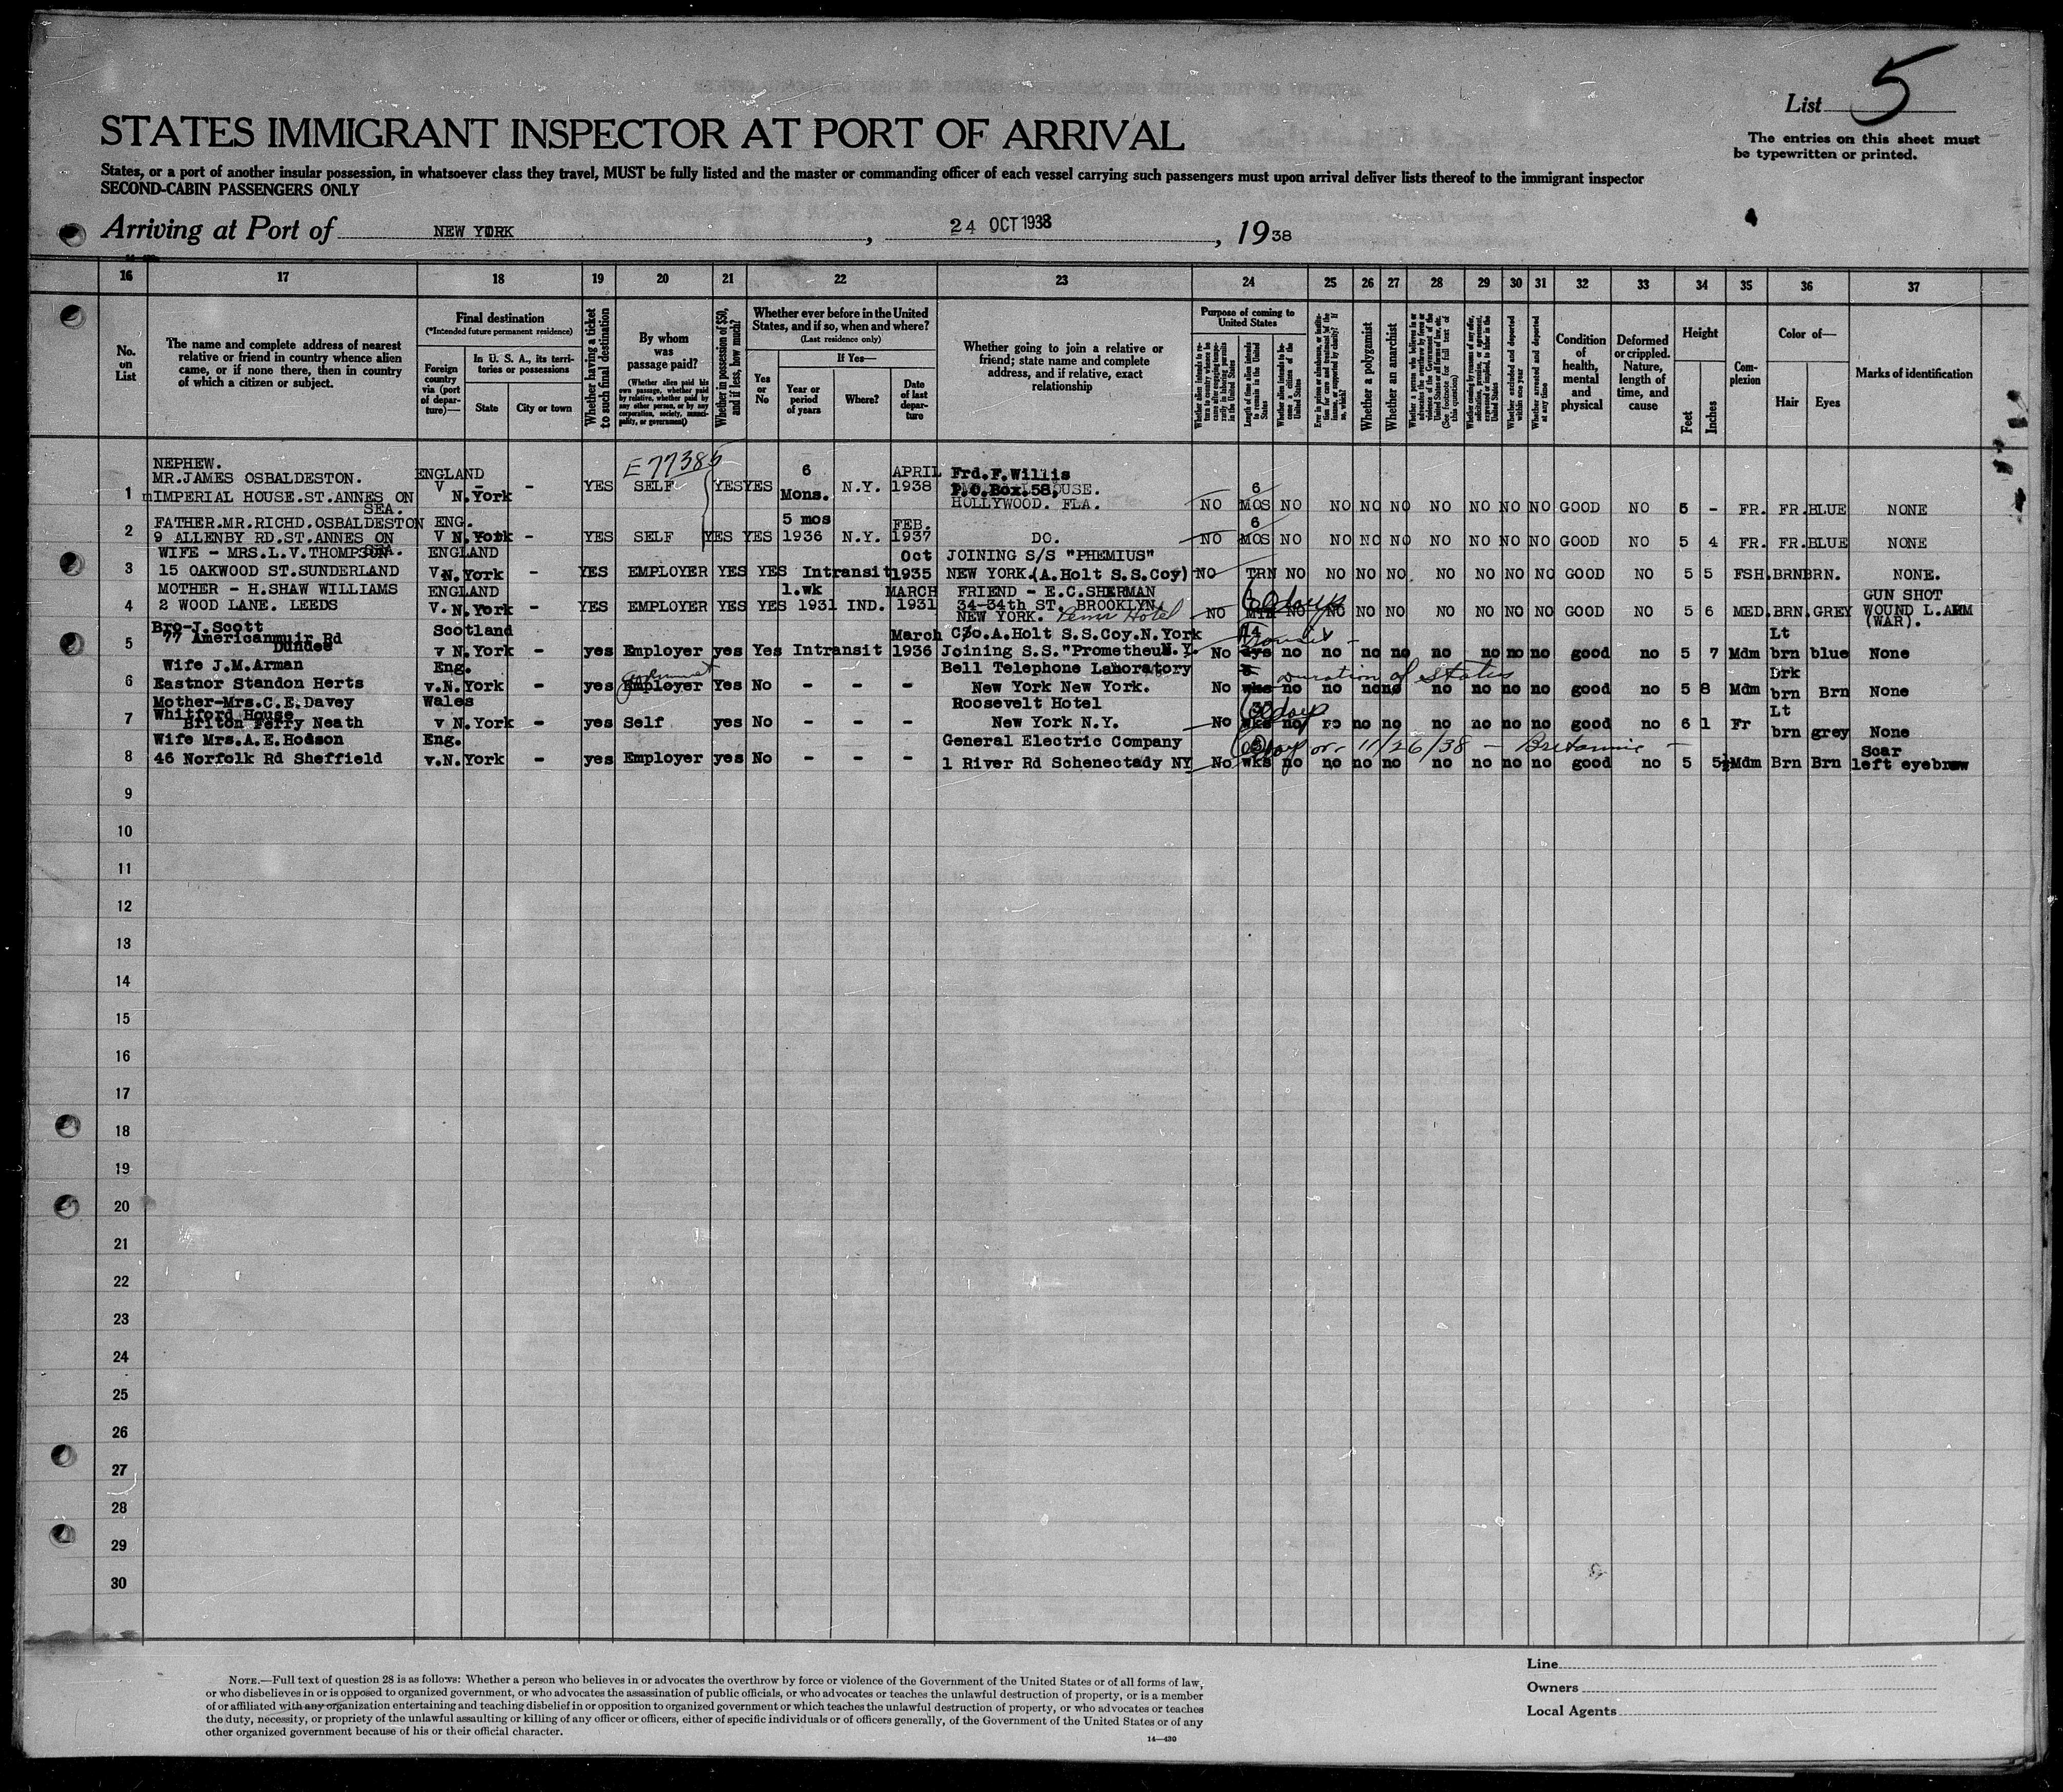 List 5
The entries on this sheet must
be typewritten or printed.
STATES IMMIGRANT INSPECTOR AT PORT OF ARRIVAL
States, or a port of another insular possession, in whatsoever class they travel, MUST be fully listed and the master or commanding officer of each vessel carrying such passengers must upon arrival deliver lists thereof to the immigrant inspector
SECOND-CABIN PASSENGERS ONLY
Arriving at Port of NEW YORK, 24 OCT 1938, 1938
16 17 18 19 20 21 22 23 24 25 26 27 28 29 30 31 32 33 34 35 36 37
No. on List
The name and complete address of nearest
relative or friend in country whence alien
came, or if none there, then in country
of which a citizen or subject.
Final destination
(*Intended future permanent residence)
Foreign country via (port of departure)—
In U. S. A., its territories or possessions
State
City or town
Whether having a ticket to such final destination
By whom was passage paid?
(Whether alien paid his own passage, whether paid by relative, whether paid by any other person, or by any corporation, society, municipality, or government)
Whether in possession of $50, and if less, how much?
Whether ever before in the United States, and if so, when and where?
(Last residence only)
Yes or No
If Yes—
Year or period of years
Where?
Date of last departure
Whether going to join a relative or
friend; state name and complete
address, and if relative, exact
relationship
Purpose of coming to United States
Length of time alien intends to remain in the United States
Whether alien intends to become a citizen of the United States
Whether a polygamist
Whether an anarchist
Whether excluded and deported within one year
Whether arrested and deported at any time
Condition of health, mental and physical
Deformed or crippled. Nature, length of time, and cause
Height
Feet
Inches
Complexion
Color of—
Hair
Eyes
Marks of identification
1 NEPHEW.
MR.JAMES OSBALDESTON.
IMPERIAL HOUSE.ST.ANNES ON
SEA.
ENGLAND V - N.York YES SELF E77385 YES YES 6 Mons. N.Y. APRIL 1938
Frd.F.Willis
P.O.Box.58,
HOLLYWOOD. FLA.
NO 6 MOS NO NO NO NO NO NO NO NO GOOD NO 5 - FR. FR. BLUE NONE
2 FATHER.MR.RICHD.OSBALDESTON
9 ALLENBY RD.ST.ANNES ON
SEA.
ENG. V N.York - YES SELF YES YES 5 mos 1936 N.Y. FEB. 1937 DO. NO 6 MOS NO NO NO NO NO NO NO NO GOOD NO 5 4 FR. FR. BLUE NONE
3 WIFE - MRS.L.V.THOMPSON
15 OAKWOOD ST.SUNDERLAND
ENGLAND V N.York - YES EMPLOYER YES YES Intransit Oct 1935
JOINING S/S "PHEMIUS"
NEW YORK.(A.Holt S.S.Coy)
NO TRN NO NO NO NO NO NO NO NO GOOD NO 5 5 FSH. BRN BRN. NONE.
4 MOTHER - H.SHAW WILLIAMS
2 WOOD LANE. LEEDS
ENGLAND V.N.York - YES EMPLOYER YES YES 1.wk 1931 IND. MARCH 1931
FRIEND - E.C.SHERMAN
34-34th ST. BROOKLYN,
NEW YORK. Penn Hotel
NO 60 days NO NO NO NO NO NO NO NO GOOD NO 5 6 MED. BRN. GREY
GUN SHOT
WOUND L.ARM
(WAR).
5 Bro-J.Scott
77 Americanmuir Rd
Dundee
Scotland v N.York - yes Employer yes Yes Intransit March 1936
C/o.A.Holt S.S.Coy.N.York
Joining S.S."Prometheus N.Y.
No 14 dys Transit no no no no no no no no good no 5 7 Mdm Lt brn blue None
6 Wife J.M.Arman
Eastnor Standon Herts
Eng. v.N.York - yes Employer Yes No - - -
Bell Telephone Laboratory
New York New York.
No wks duration of Status no no no no no no no no good no 5 8 Mdm Drk brn Brn None
7 Mother-Mrs.C.E.Davey
Whitford House
Briton Ferry Neath
Wales v N.York - yes Self yes No - - -
Roosevelt Hotel
New York N.Y.
No wks days no no no no no no no no good no 6 1 Fr Lt brn grey None
8 Wife Mrs.A.E.Hodson
46 Norfolk Rd Sheffield
Eng. v.N.York - yes Employer yes No - - -
General Electric Company
1 River Rd Schenectady NY
No wks 11/26/38 - Britannic - no no no no no no no no good no 5 5½ Mdm Brn Brn
Scar
left eyebrow
9
10
11
12
13
14
15
16
17
18
19
20
21
22
23
24
25
26
27
28
29
30
NOTE.—Full text of question 28 is as follows: Whether a person who believes in or advocates the overthrow by force or violence of the Government of the United States or of all forms of law,
or who disbelieves in or is opposed to organized government, or who advocates the assassination of public officials, or who advocates or teaches the unlawful destruction of property, or is a member
of or affiliated with any organization entertaining and teaching disbelief in or opposition to organized government or which teaches the unlawful destruction of property, or who advocates or teaches
the duty, necessity, or propriety of the unlawful assaulting or killing of any officer or officers, either of specific individuals or of officers generally, of the Government of the United States or of any
other organized government because of his or their official character.
14—430
Line
Owners
Local Agents